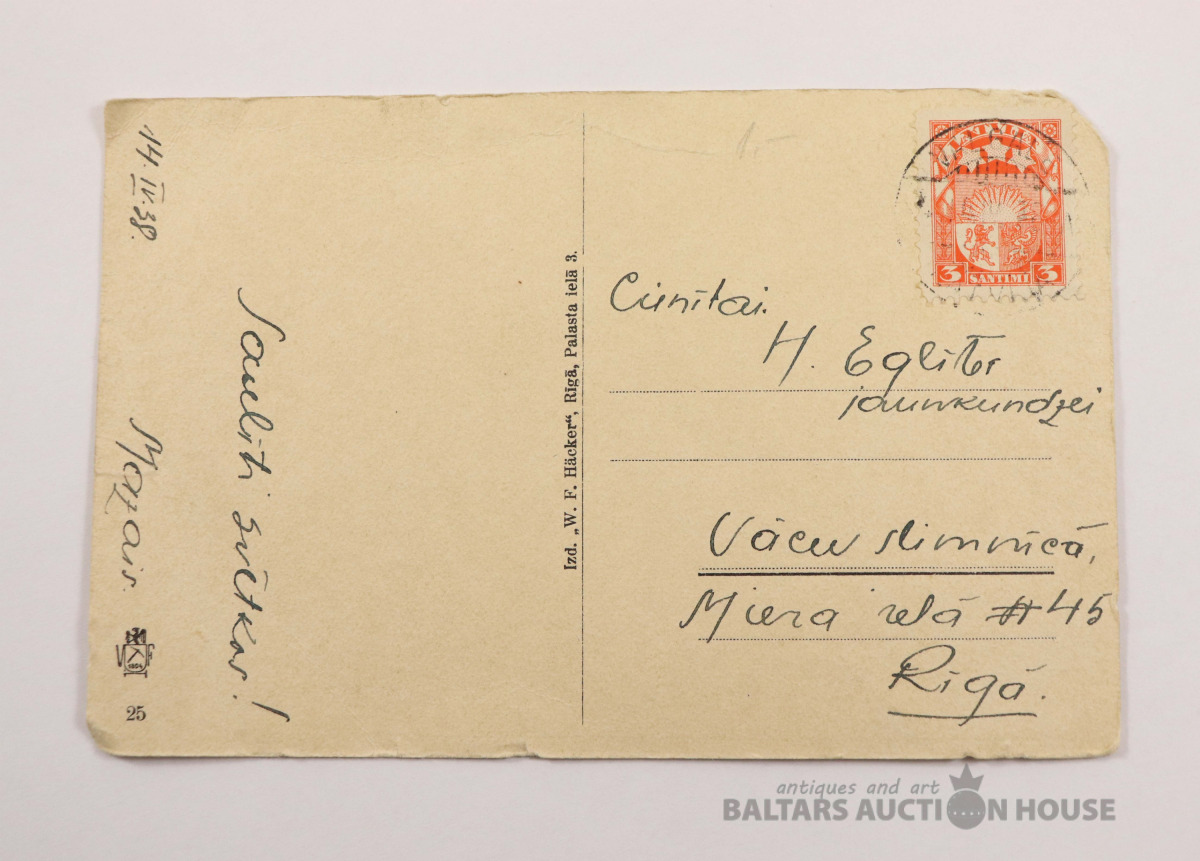 14. IV. 38.
Saulīti svētkos!
Mazais.
25
1864
Izd. „W. F. Häcker“, Rīgā, Palasta ielā 3.
1.-
LATVIJA
3 SANTIMI 3
Cienītai.
H. Eglīte
jaunkundzei
Vācu slimnīcā,
Miera ielā # 45
Rīgā.
antiques and art
BALTARS AUCTION HOUSE